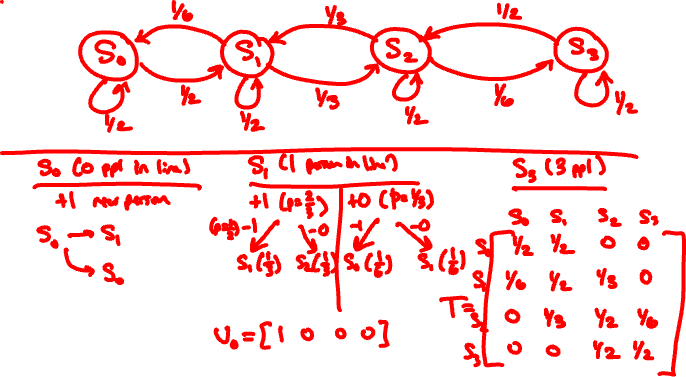 1/6 1/3 1/2
S₀ S₁ S₂ S₃
1/2 1/3 1/6
1/2 1/2 1/2 1/2
S₀ (0 ppl in line)
+1 new person
S₀ → S₁
↳ S₀
S₁ (1 person in line)
+1 (p=2/3) +0 (p=1/3)
(p=1/2) -1 -0 -1 -0
S₁ (1/3) S₂ (1/3) S₀ (1/6) S₁ (1/6)
U₀ = [1 0 0 0]
S₃ (3 ppl)
S₀ S₁ S₂ S₃
S₀ 1/2 1/2 0 0
S₁ 1/6 1/2 1/3 0
T=
S₂ 0 1/3 1/2 1/6
S₃ 0 0 1/2 1/2